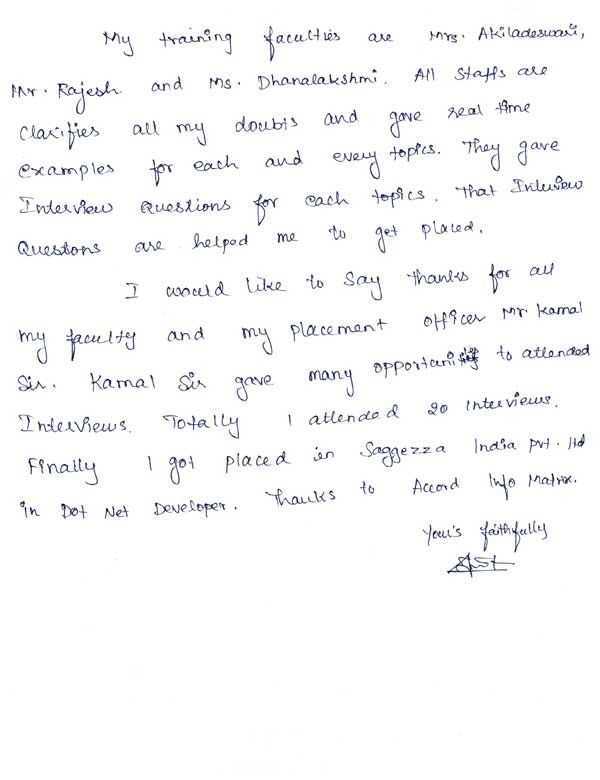 My training faculties are Mrs. Akiladeswari,
Mr. Rajesh and Ms. Dhanalakshmi. All Staffs are
Clarifies all my doubts and gave real time
examples for each and every topics. They gave
Interview Questions for each topics. That Interview
Questions are helped me to get placed.
I would like to Say thanks for all
my faculty and my placement officer Mr. Kamal
Sir. Kamal Sir gave many opportunities to attended
Interviews. Totally I attended 20 interviews.
Finally I got placed in Saggezza India Pvt. Ltd
in Dot Net Developer. Thanks to Accord Info Matrix.
Your's faithfully